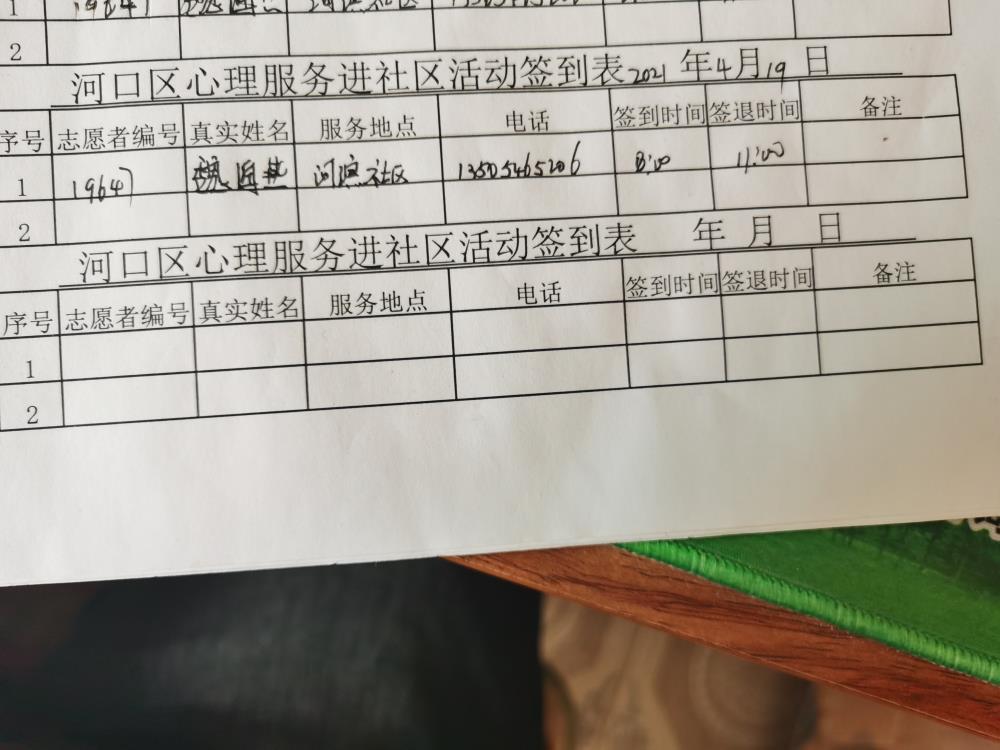 1 19647 河滨社区
2
河口区心理服务进社区活动签到表 2021 年 4 月 19 日
序号 志愿者编号 真实姓名 服务地点 电话 签到时间 签退时间 备注
1 19647 魏 河滨社区 13505465206 8:00 11:00
2
河口区心理服务进社区活动签到表 年 月 日
序号 志愿者编号 真实姓名 服务地点 电话 签到时间 签退时间 备注
1
2